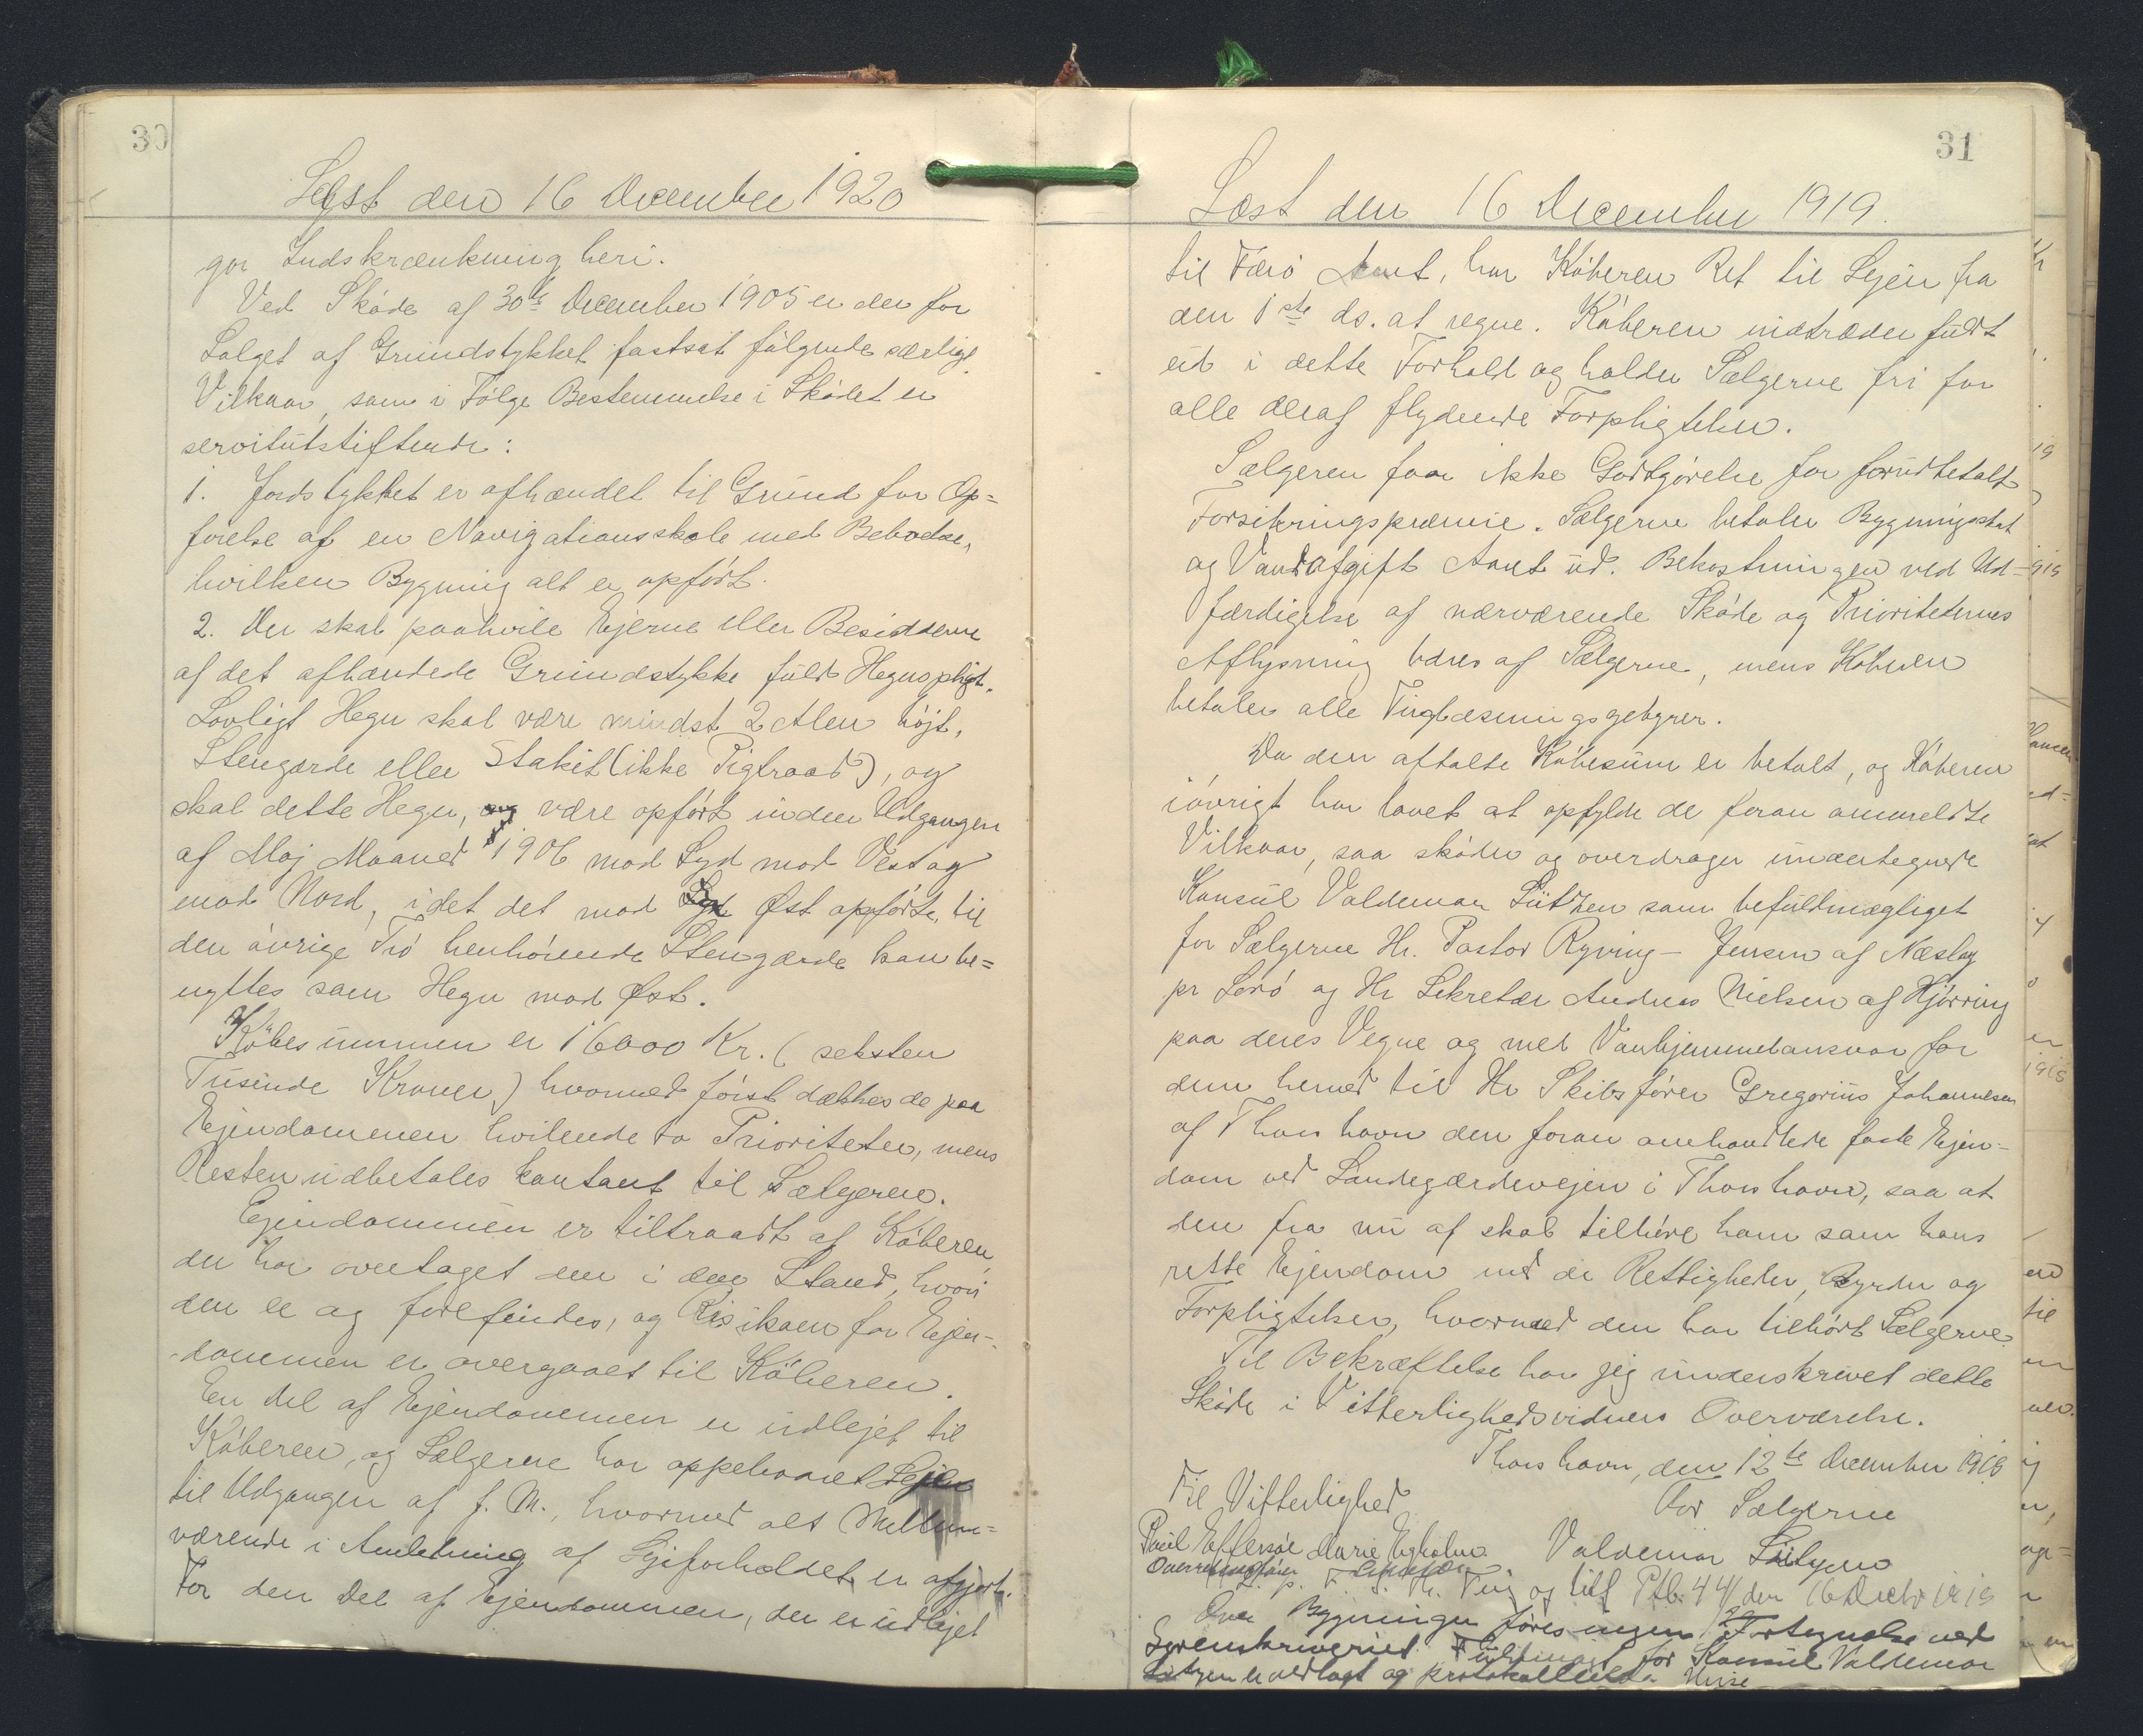 30
Læst den 16 December 1920
gør Indskrænkning heri.
Ved Skøde af 30te December 1905 er der for
Salget af Grundstykket fastsat følgende særlige
Vilkaar, som i Følge Bestemmelse i Skødet er
servitutstiftende:
1. Jordstykket er afhændet til Grund for Op=
førelse af en Navigationsskole med Beboelse,
hvilken Bygning alt er opført.
2. Der skal paahvile Ejerne eller Besidderne
af det afhændede Grundstykke fuld Hegnspligt.
Lovligt Hegn skal være mindst 2 Alen højt,
Stengærde eller Stakit (ikke Pigtraad), og
skal dette Hegn, være opført inden Udgangen
af Maj Maaned 1906 mod Syd mod Vest og
mod Nord, idet det mod Øst opførte, til
den øvrige Trø henhørende Stengærde kan be=
nyttes som Hegn mod Øst.
Købesummen er 16000 Kr. (seksten
Tusinde Kroner) hvormed først dækkes de paa
Ejendommen hvilende to Prioriteter, mens
Resten udbetales kontant til Sælgeren.
Ejendommen er tiltraadt af Køberen,
der har overtaget den i den Stand, hvori
den er og forefindes, og Risikoen for Ejen-
dommen er overgaaet til Køberen.
En Del af Ejendommen er udlejet til
Køberen, og Sælgerne har oppebaaret Lejen
til Udgangen af f. M., hvormed alt Mellem=
værende i Anledning af Lejeforholdet er afgjort.
For den Del af Ejendommen, der er udlejet
31
Læst den 16 December 1919.
til Færø Amt, har Køberen Ret til Lejen fra
den 1ste ds. at regne. Køberen indtræder fuldt
ud i dette Forhold og holder Sælgerne fri for
alle deraf flydende Forpligtelser.
Sælgeren faar ikke Godtgørelse for forudbetalt
Forsikringspræmie. Sælgerne betaler Bygningsskat
og Vandafgift Aaret ud. Bekostningen ved Ud-
færdigelse af nærværende Skøde og Prioriteternes
Aflysning bæres af Sælgerne, mens Køberen
betaler alle Tinglæsningsgebyrer.
Da den aftalte Købesum er betalt, og Køberen
iøvrigt har lovet at opfylde de foran anmeldte
Vilkaar, saa skøder og overdrager undertegnede
Konsul Valdemar Lützen som befuldmægtiget
for Sælgerne Hr. Pastor Ryving-Jensen af Næsby
pr Sorø og Hr Sekretær Andreas Nielsen af Hjørring
paa deres Vegne og med Vanhjemmelansvar for
dem herved til Hr Skibsfører Gregorius Johannesen
af Thorshavn den foran omhandlede faste Ejen-
dom ved Landegærdevejen i Thorshavn, saa at
den fra nu af skal tilhøre ham som hans
rette Ejendom med de Rettigheder, Byrder og
Forpligtelser, hvormed den har tilhørt Sælgerne.
Til Bekræftelse har jeg underskrevet dette
Skøde i Vitterlighedsvidners Overværelse.
Thorshavn, den 12te December 1919
Til Vitterlighed For Sælgerne
Poul Effersøe Marie Egholm Valdemar Lützen
Overretssagfører
Ting og 44 den 16 Decbr 1919
Over Bygninger føres ingen Fortegnelse ved
Sorenskriveriet. Fuldmagt for Konsul Valdemar
Lützen er vedlagt og protokolleret.